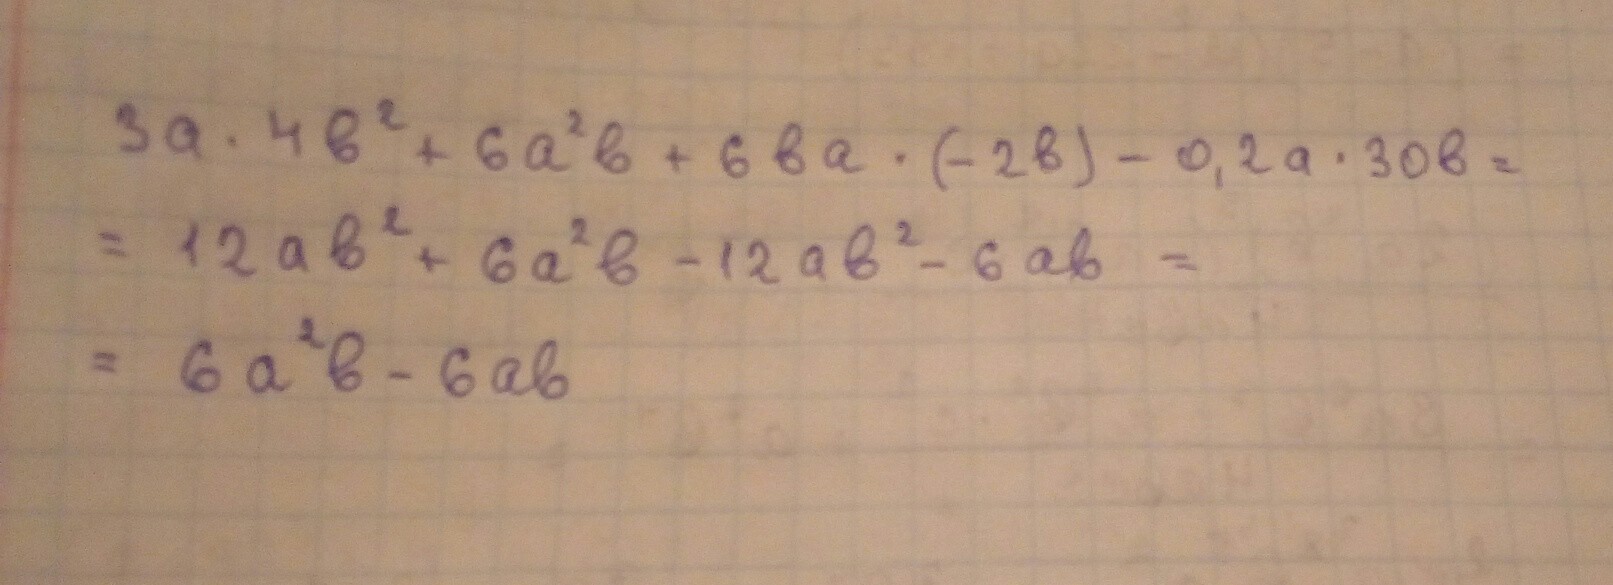 3a · 4b² + 6a²b + 6ba · (-2b) - 0,2a · 30b =
= 12ab² + 6a²b - 12ab² - 6ab =
= 6a²b - 6ab